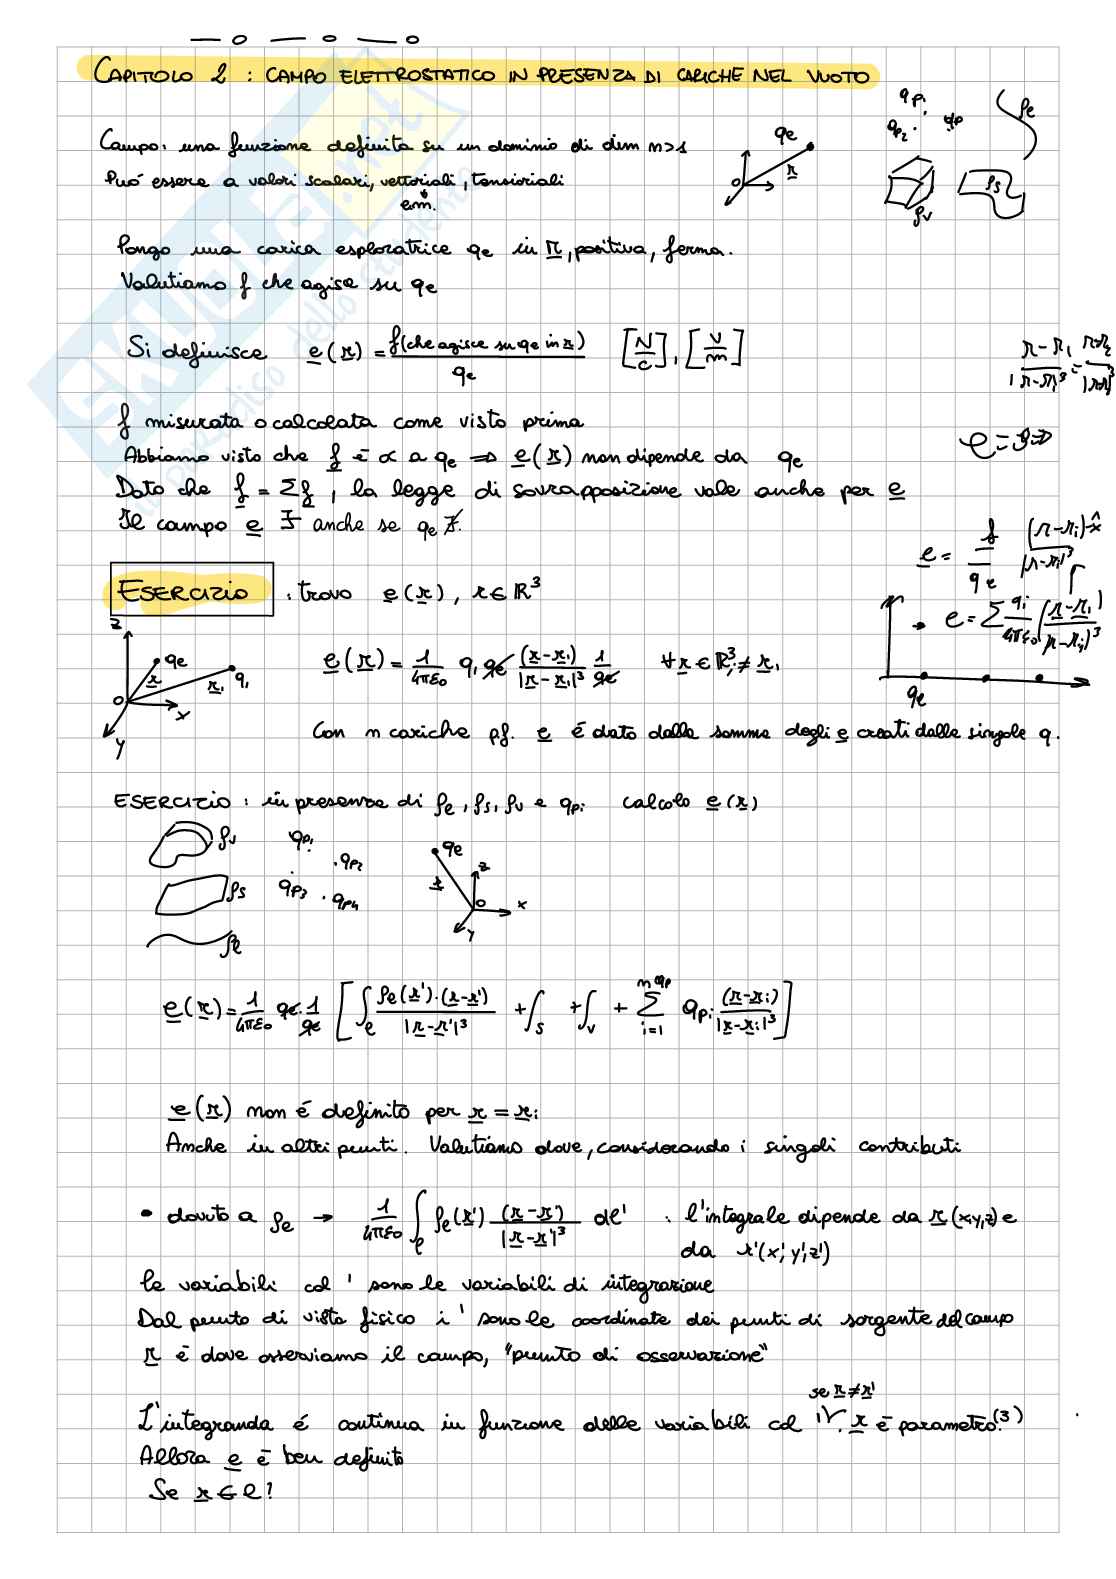 CAPITOLO 2 : CAMPO ELETTROSTATICO IN PRESENZA DI CARICHE NEL VUOTO
qp1
qp2 · qp
ρe
ρs
ρv
qe
r
O
Campo: una funzione definita su un dominio di dim n>1
Può essere a valori scalari, vettoriali, tensioriali
e.m.
Pongo una carica esploratrice qe in r, positiva, ferma.
Valutiamo f che agisce su qe
Si definisce e(r) = f(che agisce su qe in r) / qe [N/C], [V/m]
r-r1 / |r-r1|³ =
f misurata o calcolata come visto prima
Abbiamo visto che f è ∝ a qe ⇒ e(r) non dipende da qe
Dato che f = Σf, la legge di sovrapposizione vale anche per e
Il campo e ∃ anche se qe ∄.
e = f / qe (r-ri)·x̂ / |r-ri|³
→ e = Σ qi / 4πε0 (r-ri) / |r-ri|³
qe
ESERCIZIO : trovo e(r), r∈ℝ³
z
qe
r
r1
q1
O
x
y
e(r) = 1/4πε0 q1 qe (r-r1) / |r-r1|³ 1/qe ∀r∈ℝ³, ≠ r1
Con n cariche pf. e é dato dalla somma degli e creati dalle singole q.
ESERCIZIO : in presenza di ρe, ρs, ρv e qpi calcolo e(r)
ρv
qp1
· qp2
ρs
qp3
· qp4
ρe
qe
r
z
O
x
y
e(r) = 1/4πε0 qe · 1/qe [ ∫e ρe(r')·(r-r') / |r-r'|³ + ∫s + ∫v + Σ i=1 nqp qpi (r-ri) / |r-ri|³ ]
e(r) non é definito per r = ri
Anche in altri punti. Valutiamo dove, considerando i singoli contributi
• dovuto a ρe → 1/4πε0 ∫e ρe(r') (r-r') / |r-r'|³ dl' : l'integrale dipende da r(x,y,z) e
da r'(x', y', z')
le variabili col ' sono le variabili di integrazione
Dal punto di vista fisico i ' sono le coordinate dei punti di sorgente del campo
r è dove osserviamo il campo, "punto di osservazione"
se r ≠ r'
L'integranda é continua in funzione delle variabili col '. r è parametro.(3)
Allora e è ben definito
Se r ∈ l?